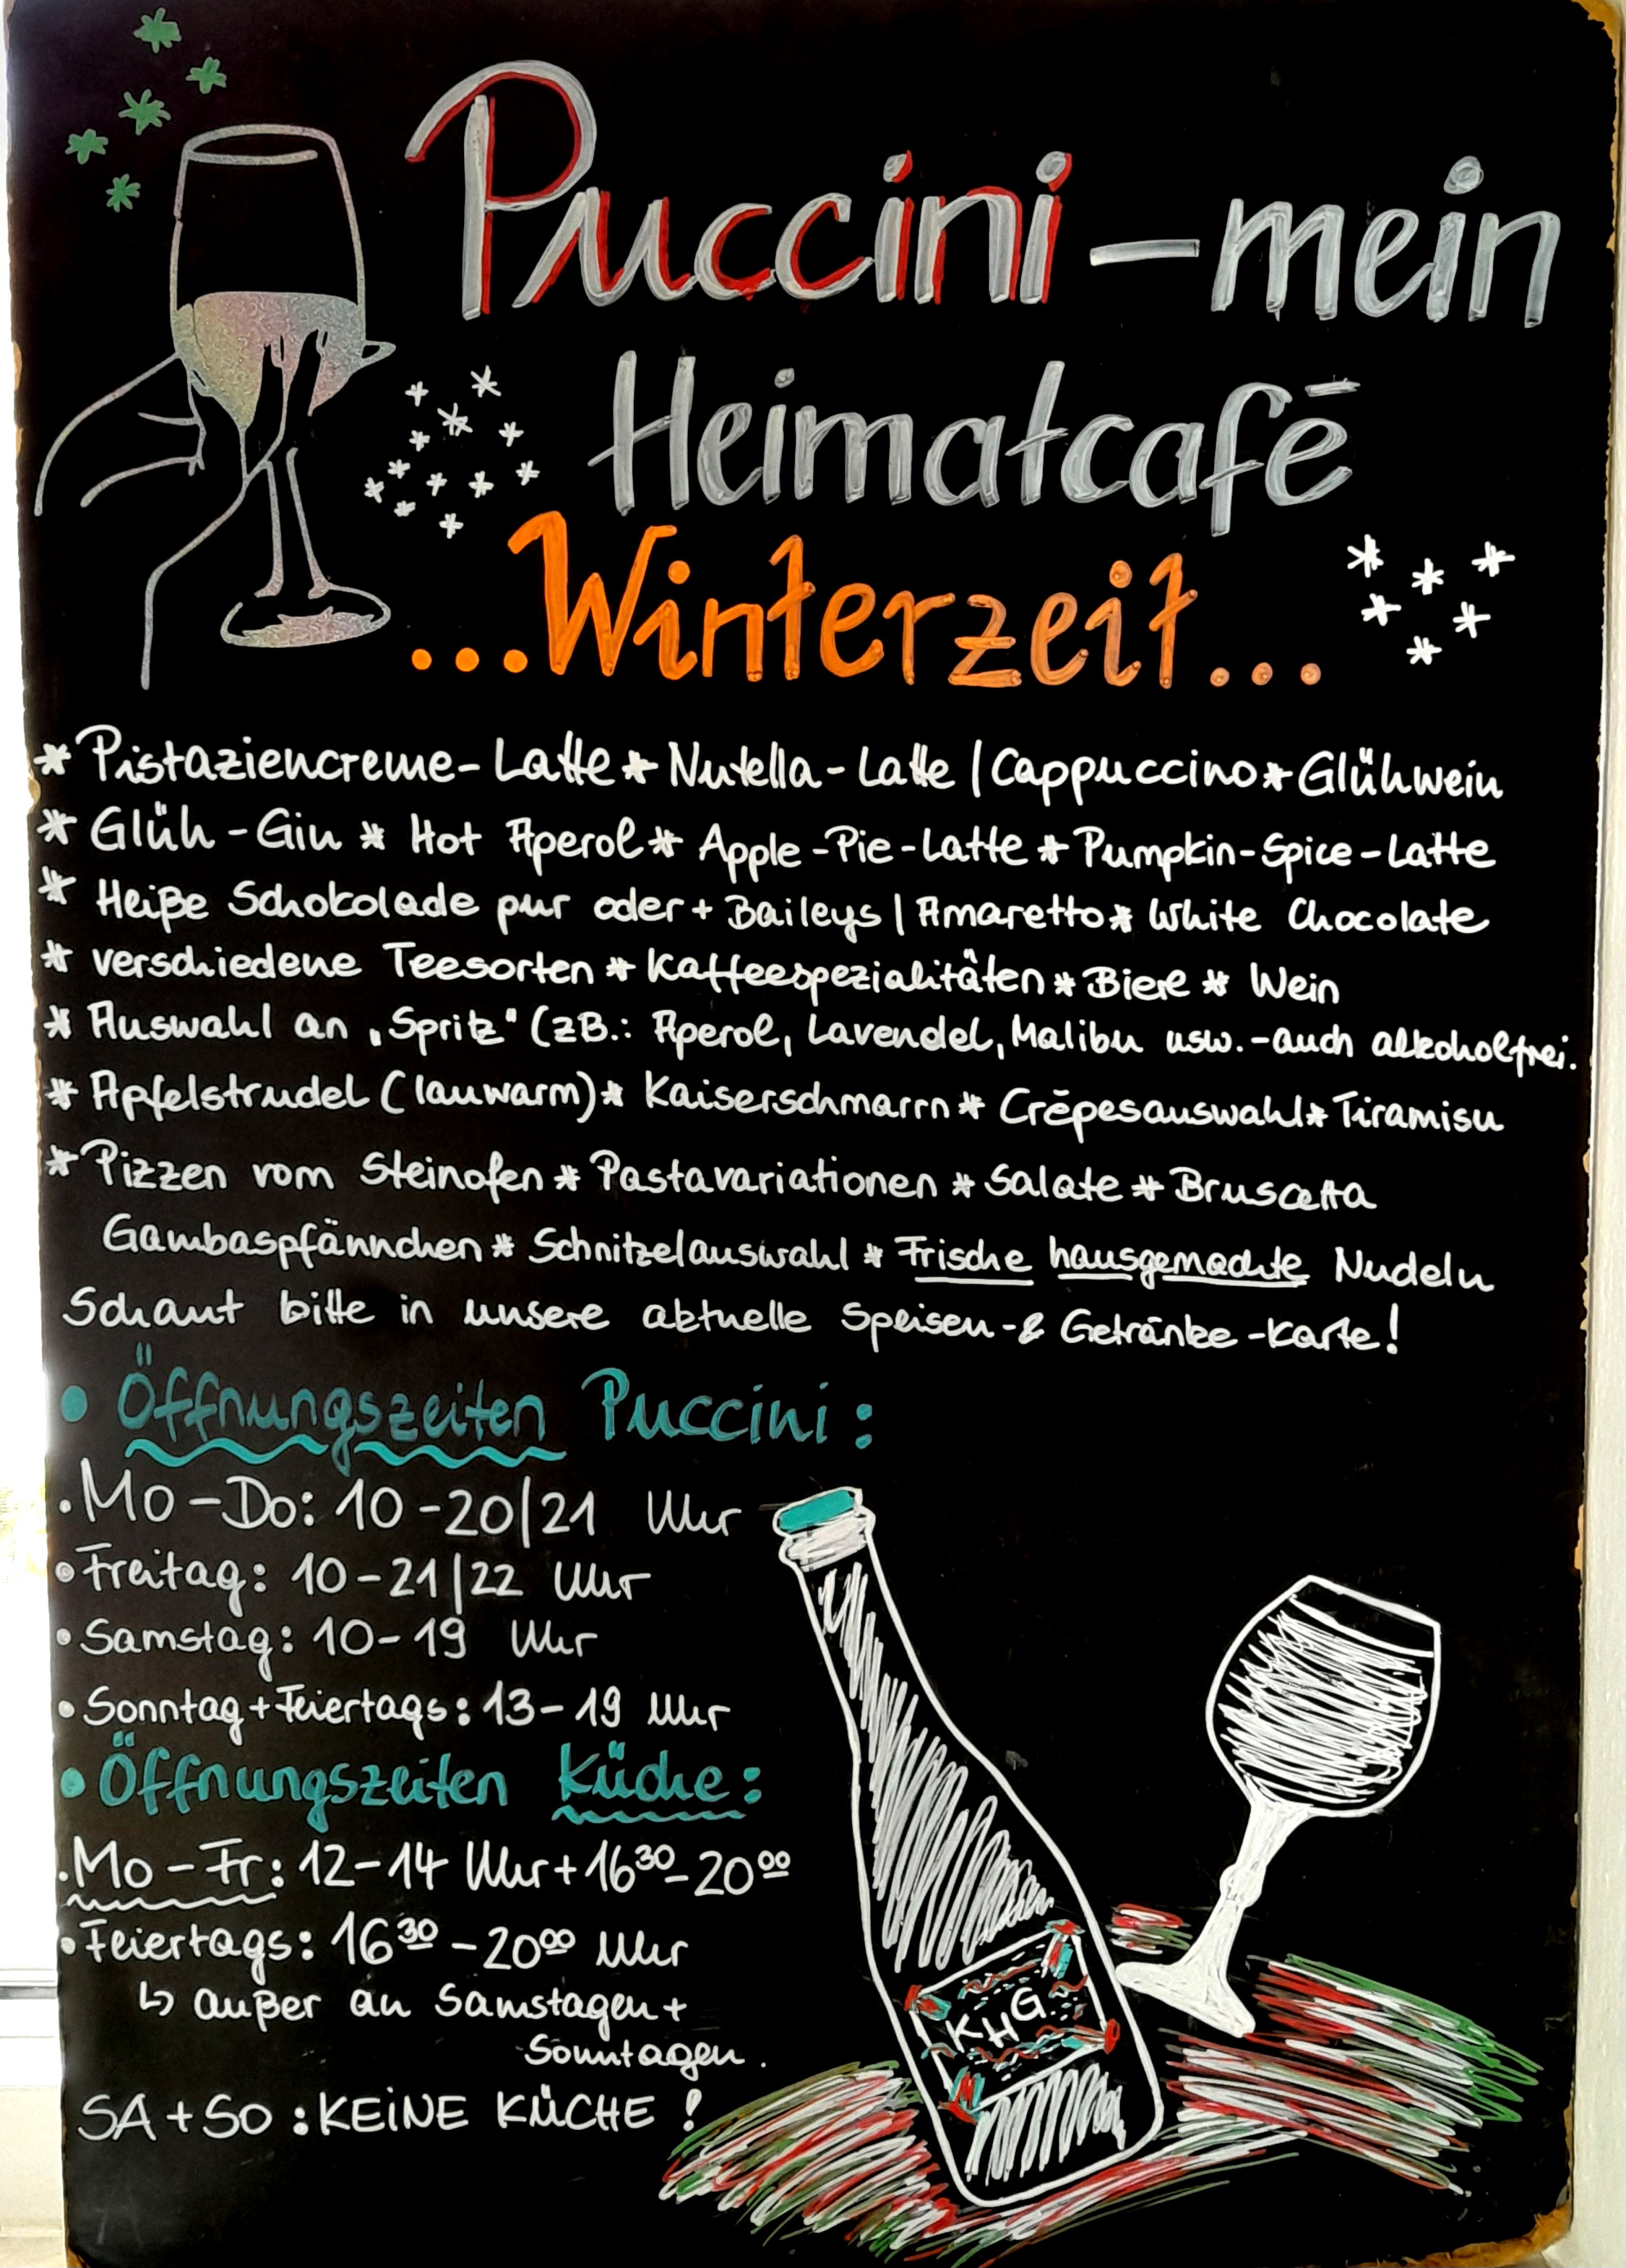 Puccini - mein
Heimatcafé
...Winterzeit...
* Pistaziencreme-Latte * Nutella-Latte | Cappuccino * Glühwein
* Glüh-Gin * Hot Aperol * Apple-Pie-Latte * Pumpkin-Spice-Latte
* Heiße Schokolade pur oder + Baileys | Amaretto * White Chocolate
* verschiedene Teesorten * Kaffeespezialitäten * Biere * Wein
* Auswahl an „Spritz" (zB.: Aperol, Lavendel, Malibu usw. - auch alkoholfrei.
* Apfelstrudel (lauwarm) * Kaiserschmarrn * Crêpesauswahl * Tiramisu
* Pizzen vom Steinofen * Pastavariationen * Salate * Bruscetta
Gambaspfännchen * Schnitzelauswahl * Frische hausgemachte Nudeln
Schaut bitte in unsere aktuelle Speisen-& Getränke-Karte!
• Öffnungszeiten Puccini:
• Mo-Do: 10-20|21 Uhr
• Freitag: 10-21|22 Uhr
• Samstag: 10-19 Uhr
• Sonntag + Feiertags: 13-19 Uhr
• Öffnungszeiten Küche:
• Mo-Fr: 12-14 Uhr + 16³⁰-20⁰⁰
• Feiertags: 16³⁰-20⁰⁰ Uhr
↳ außer an Samstagen +
Sonntagen.
SA + SO: KEINE KÜCHE!
KHG